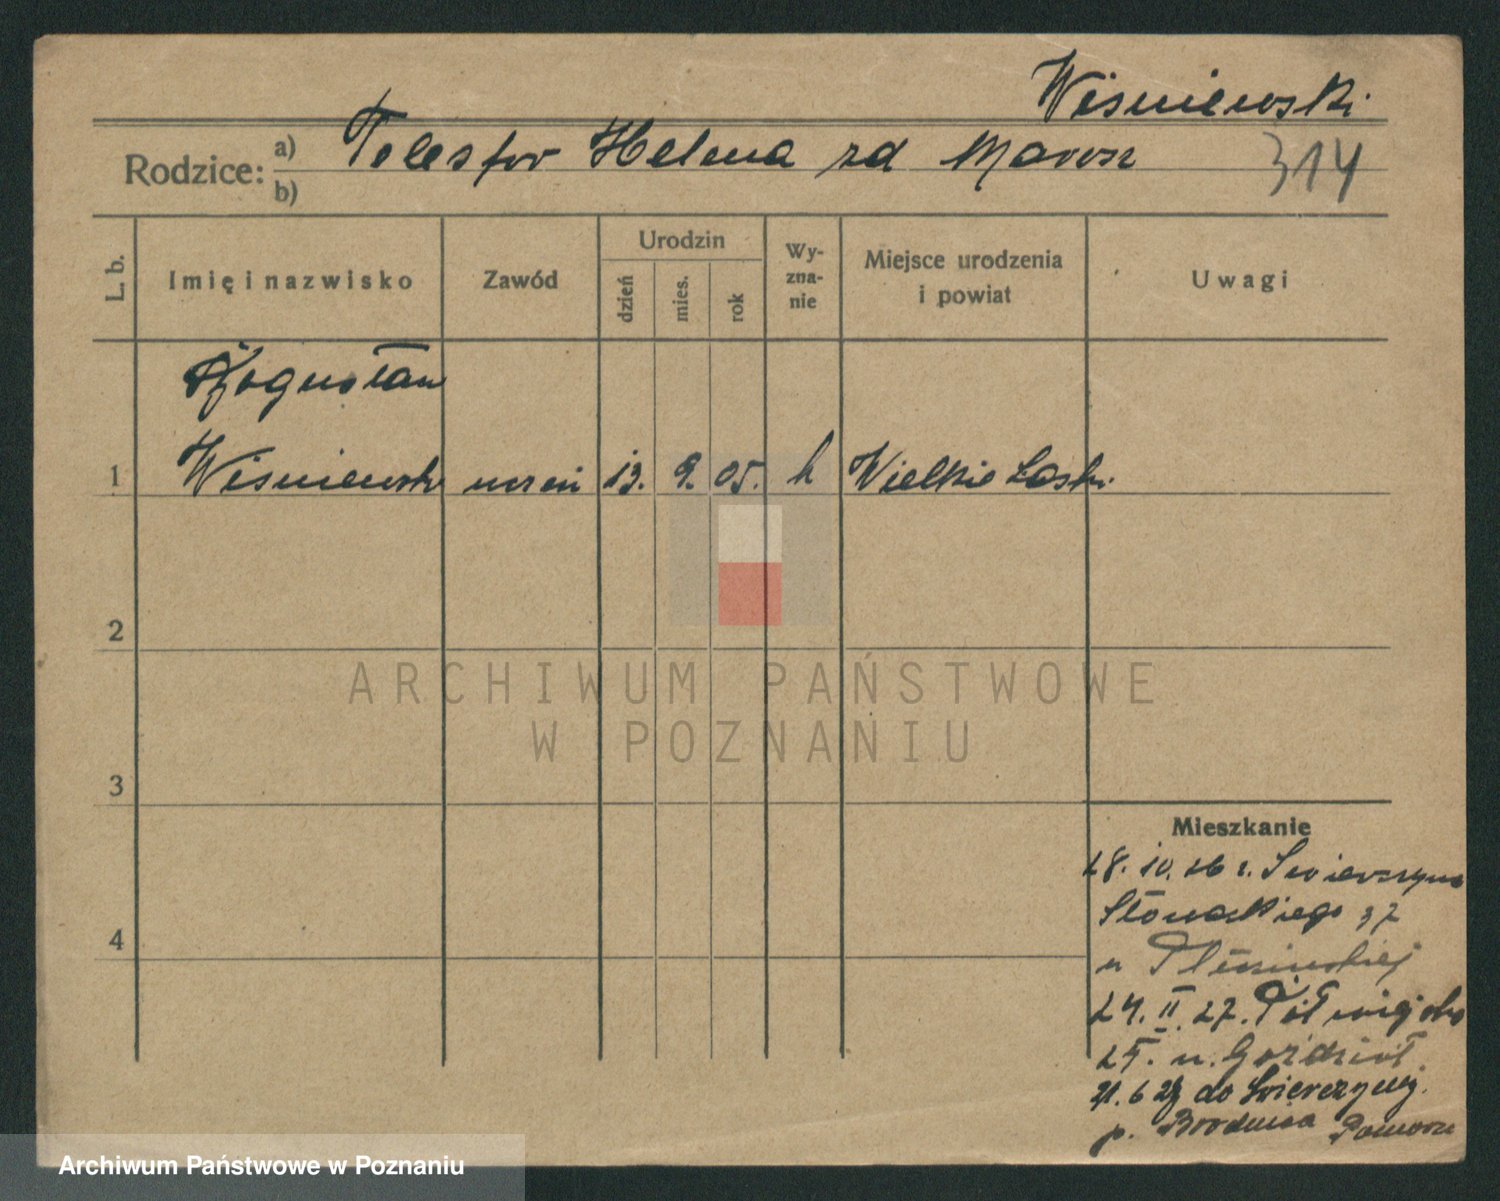 Wiśniewski
Rodzice: a) Telesfor Helena zd Marosz
b)
314
L. b.
Imię i nazwisko
Zawód
Urodzin
dzień
mies.
rok
Wy-
zna-
nie
Miejsce urodzenia
i powiat
Uwagi
Bogusław
1 Wiśniewski uczeń 13. 9. 05. k Wielkie Łaski.
2
ARCHIWUM PAŃSTWOWE
W POZNANIU
3
Mieszkanie
28. 10. 26 r. Swierczyna
Słowackiego 37
4
u
24. II. 27. Półwiejska
25. u.
21. 6 28 do Swierczyny.
p. Brodnica Pomorze
Archiwum Państwowe w Poznaniu